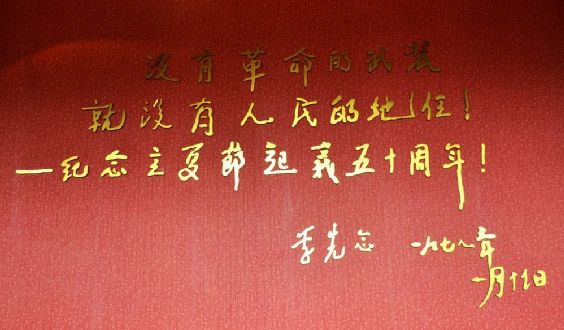 没有革命的武装
就没有人民的地位!
—纪念立夏節起義五十周年!
李先念 一九七九年
一月十九日